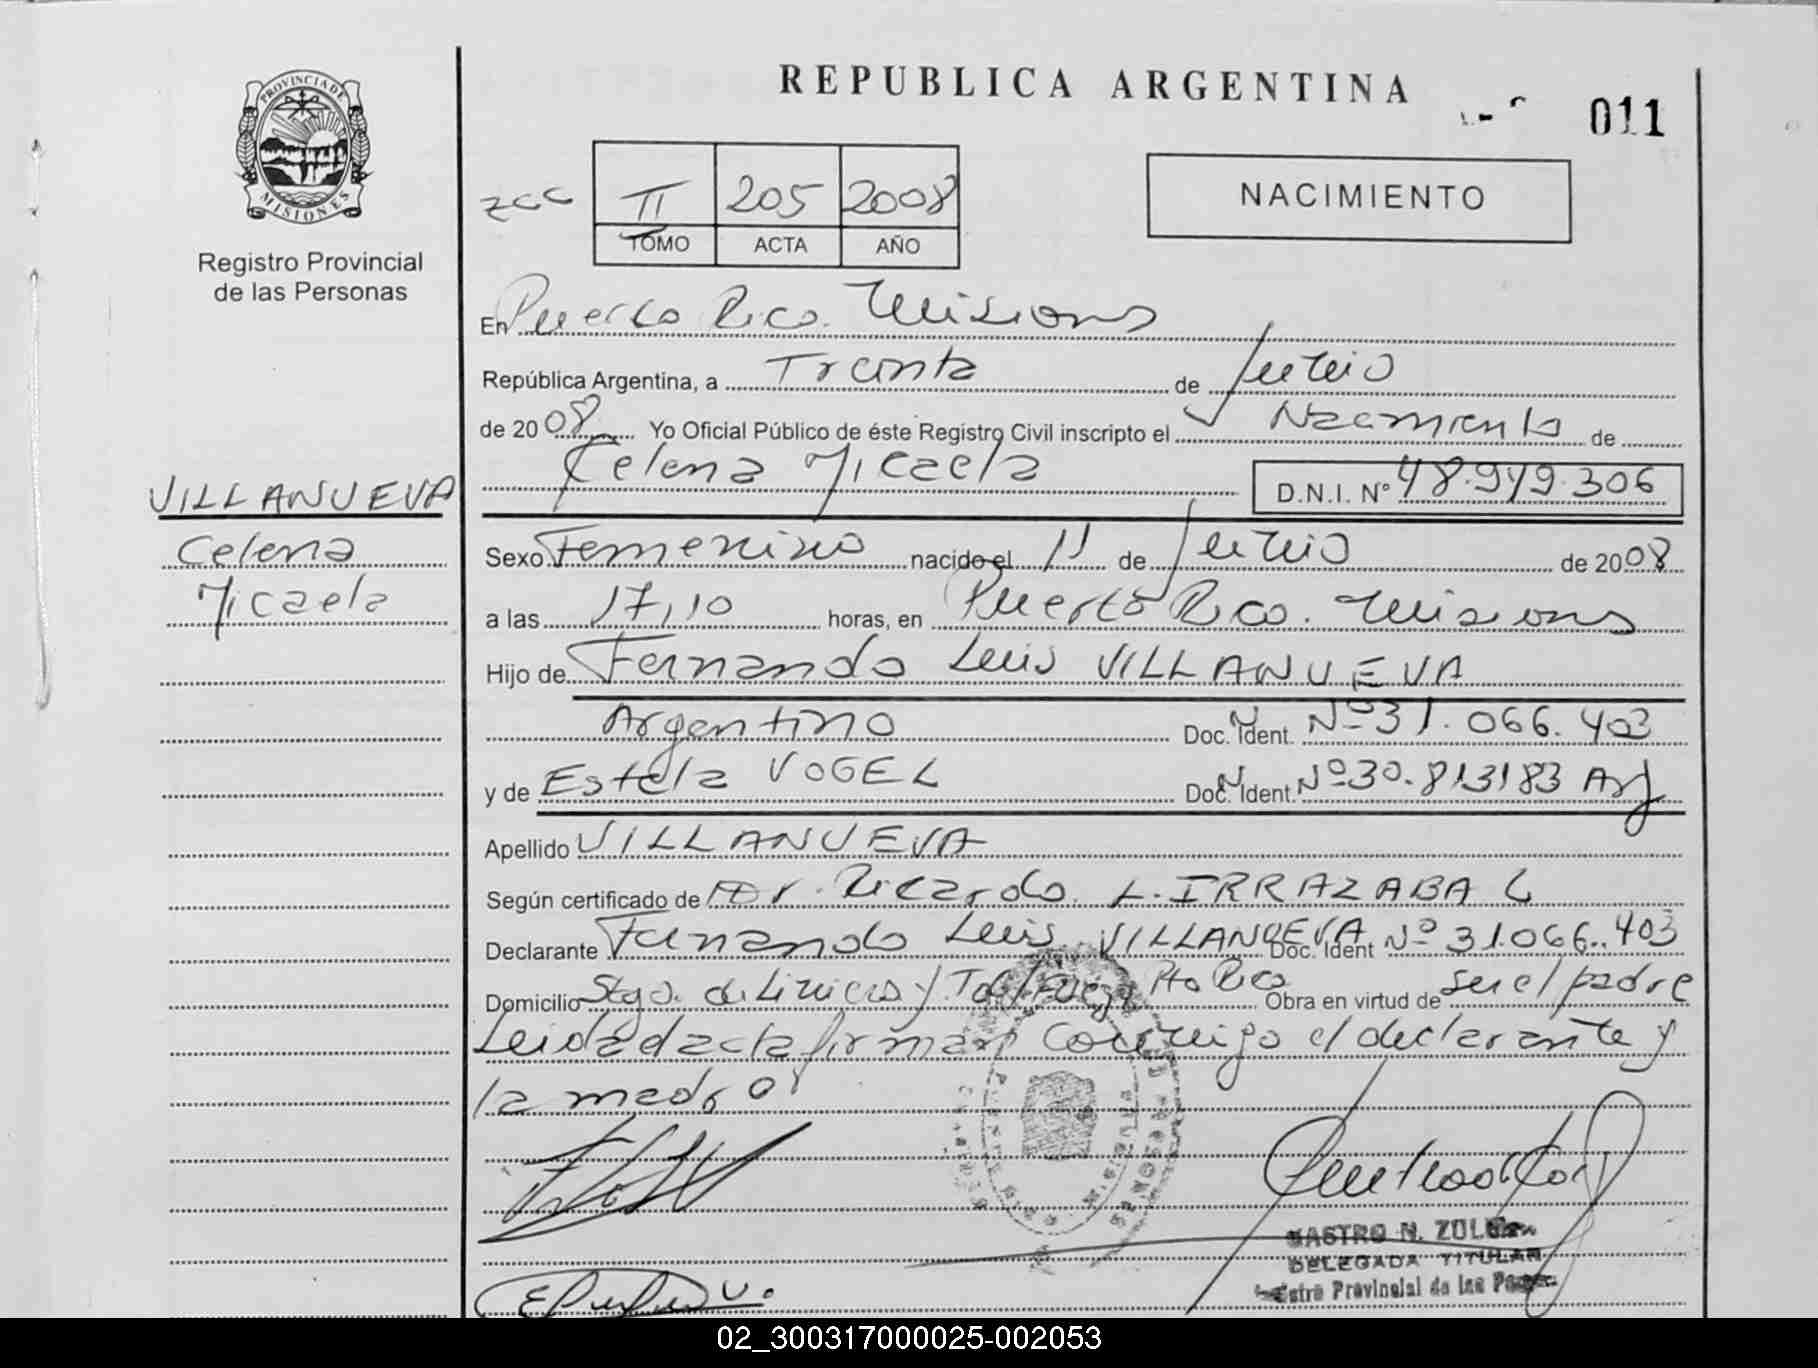 REPUBLICA ARGENTINA
011
PROVINCIA DE
MISIONES
Registro Provincial
de las Personas
II 205 2008
TOMO ACTA AÑO
NACIMIENTO
En Puerto Rico. Misiones
República Argentina, a Treinta de Julio
de 2008 Yo Oficial Público de éste Registro Civil inscripto el Nacimiento de
Celena Micaela D.N.I. Nº 48.949.306
VILLANUEVA
Celena
Micaela
Sexo Femenino nacido el 11 de Julio de 2008
a las 17,10 horas, en Puerto Rico. Misiones
Hijo de Fernando Luis VILLANUEVA
Argentino Doc. Ident. Nº 31.066.403
y de Estela VOGEL Doc. Ident. Nº 30.813183 Arg
Apellido VILLANUEVA
Según certificado de Dr. Ricardo L. IRRAZABAL
Declarante Fernando Luis VILLANUEVA Doc. Ident Nº 31.066.403
Domicilio Stgo. de Liniers y T. del Fuego Pto Rico Obra en virtud de ser el padre
Leida el acta firman conmigo el declarante y
la madre
DELEGADA TITULAR
Provincial de las
02_300317000025-002053